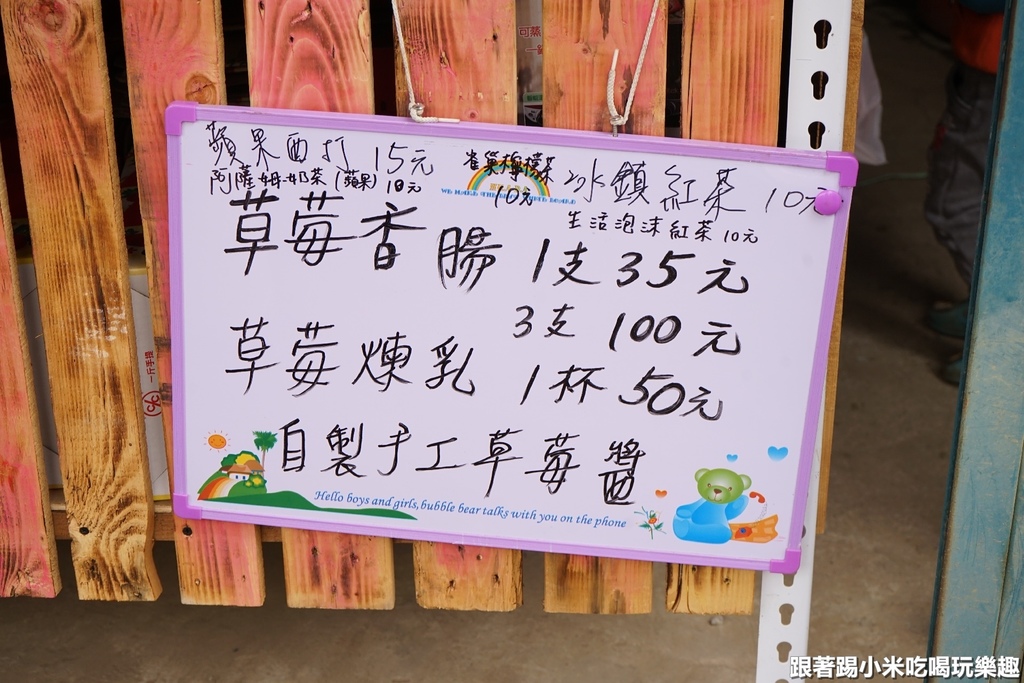 蘋果西打 15元
阿薩姆奶茶(蘋果) 10元
雀巢檸檬茶 10元
冰鎮紅茶 10元
生活泡沫紅茶 10元
草莓香腸 1支 35元
3支 100元
草莓煉乳 1杯 50元
自製手工草莓醬
Hello boys and girls, bubble bear talks with you on the phone
可蒸
一斤手提
跟著踢小米吃喝玩樂趣